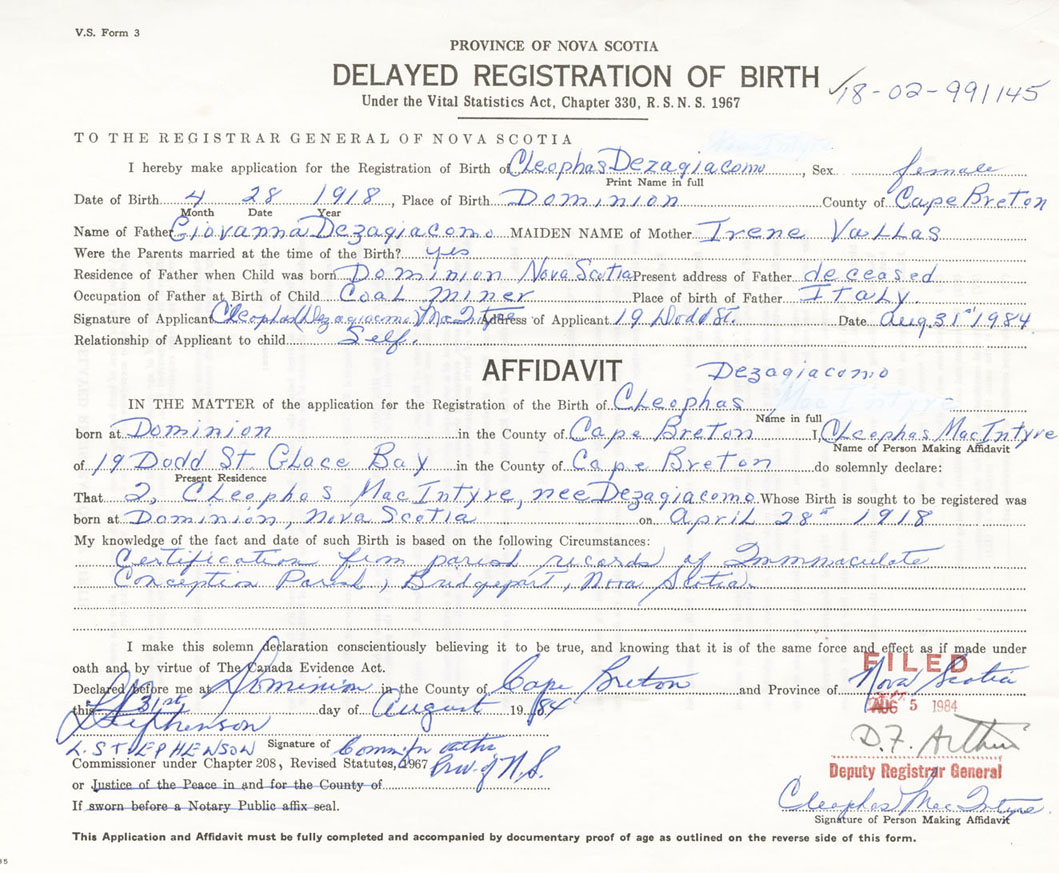 V.S. Form 3
PROVINCE OF NOVA SCOTIA
DELAYED REGISTRATION OF BIRTH
18-02-991145
Under the Vital Statistics Act, Chapter 330, R.S.N.S. 1967
TO THE REGISTRAR GENERAL OF NOVA SCOTIA
Mac Intyre
I hereby make application for the Registration of Birth of Cleophas Dezagiacomo, Sex female
Print Name in full
Date of Birth 4 28 1918, Place of Birth Dominion County of Cape Breton
Month Date Year
Name of Father Giovanna Dezagiacomo MAIDEN NAME of Mother Irene Vallas
Were the Parents married at the time of the Birth? yes
Residence of Father when Child was born Dominion Nova Scotia Present address of Father deceased
Occupation of Father at Birth of Child Coal Miner Place of birth of Father ITaly.
Signature of Applicant Cleophas (Dezagiacomo) MacIntyre Address of Applicant 19 Dodd St. Date Aug. 31st 1984
Relationship of Applicant to child Self.
AFFIDAVIT
Dezagiacomo
IN THE MATTER of the application for the Registration of the Birth of Cleophas Mac Intyre
Name in full
born at Dominion in the County of Cape Breton I, Cleophas MacIntyre
Name of Person Making Affidavit
of 19 Dodd St. Glace Bay in the County of Cape Breton do solemnly declare:
Present Residence
That I, Cleophas MacIntyre, nee Dezagiacomo Whose Birth is sought to be registered was
born at Dominion, Nova Scotia on April 28th 1918
My knowledge of the fact and date of such Birth is based on the following Circumstances:
Certification from parish records of Immaculate
Conception Parish, Bridgeport, Nova Scotia.
I make this solemn declaration conscientiously believing it to be true, and knowing that it is of the same force and effect as if made under
oath and by virtue of The Canada Evidence Act.
FILED
Declared before me at Dominion in the County of Cape Breton and Province of Nova Scotia
this 31st day of August 1984
5 1984
Stephenson
L. STEPHENSON Signature of
D.F. Arthur
Commissioner under Chapter 208, Revised Statutes, 1967 Prov. of N.S.
Deputy Registrar General
or Justice of the Peace in and for the County of
Cleophas MacIntyre
If sworn before a Notary Public affix seal.
Signature of Person Making Affidavit
This Application and Affidavit must be fully completed and accompanied by documentary proof of age as outlined on the reverse side of this form.